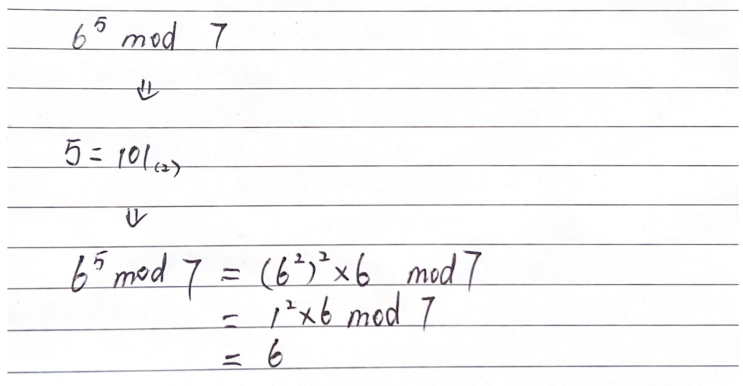 6⁵ mod 7
⇓
5 = 101₍₂₎
⇓
6⁵ mod 7 = (6²)² × 6 mod 7
= 1² × 6 mod 7
= 6